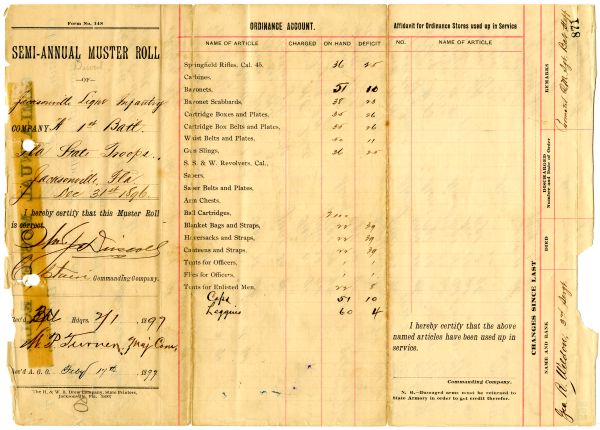 Form No. 148
SEMI-ANNUAL MUSTER ROLL
—OF—
Jacksonville Light Infantry
COMPANY "A" 1st Batt.
Fla State Troops.,
Jacksonville, Fla
Dec 31st 1896.
I hereby certify that this Muster Roll
is correct.
Captain Commanding Company.
Rec'd Hdqrs. 2/1 1897
M. P. Turner, Maj. Com.
Rec'd A. G. O. Feby 17th 1897
The H. & W. B. Drew Company, State Printers,
Jacksonville, Fla.
ORDINANCE ACCOUNT.
NAME OF ARTICLE CHARGED ON HAND DEFICIT
Springfield Rifles, Cal. 45. 36 25
Carbines,
Bayonets, 51 10
Bayonet Scabbards, 38 23
Cartridge Boxes and Plates, 35 26
Cartridge Box Belts and Plates, 35 26
Waist Belts and Plates, 50 11
Gun Slings, 36 25
S. S. & W. Revolvers, Cal.,
Sabers,
Saber Belts and Plates,
Arm Chests,
Ball Cartridges,
Blanket Bags and Straps, 22 39
Haversacks and Straps, 22 39
Canteens and Straps, 22 39
Tents for Officers,
Flies for Officers,
Tents for Enlisted Men, 22 8
Caps 51 10
Leggins 60 4
Affidavit for Ordinance Stores used up in Service
NO. NAME OF ARTICLE
I hereby certify that the above
named articles have been used up in
service.
Commanding Company.
N. B.—Damaged arms must be returned to
State Armory in order to get credit therefor.
CHANGES SINCE LAST
NAME AND RANK
DIED
DISCHARGED
Number and Date of Order
REMARKS
871